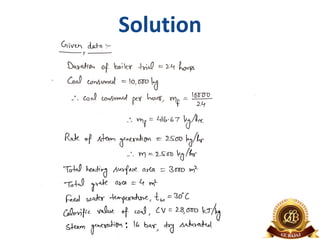 Solution
Given data :-
Duration of boiler trial = 24 hours
Coal consumed = 10,000 kg
∴ Coal consumed per hour, mf = 10000 / 24
∴ mf = 416.67 kg/hr.
Rate of steam generation = 2500 kg/hr
∴ m = 2500 kg/hr
Total heating surface area = 3000 m²
Total grate area = 4 m²
Feed water temperature, tw = 30°C
Calorific value of coal, CV = 28,000 kJ/kg
Steam generation : 16 bar, dry saturated